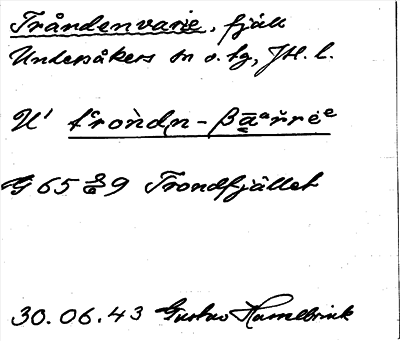 Tråndenvarie, fjäll
Undersåkers sn o. tg, Jtl. l.
U' tʿron̆dn - βa̱ᵃr̆rėᵉ
G 65 S 9 Trondfjället
30.06.43 Gustav Hasselbrink